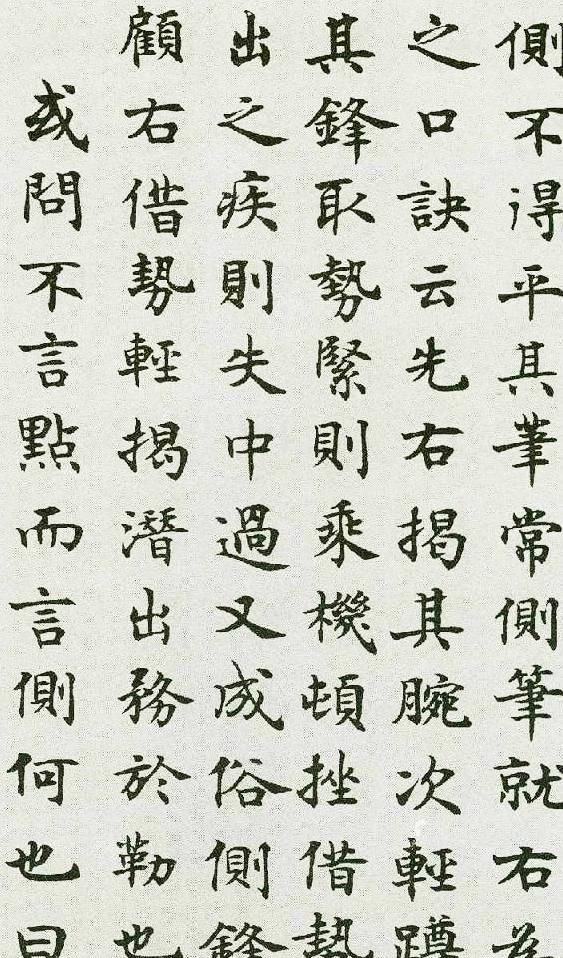 側不得平其筆常側筆就右為
之口訣云先右揭其腕次輕蹲
其鋒取勢緊則乘機頓挫借勢
出之疾則失中過又成俗側鋒
顧右借勢輕揭潛出務於勒也
或問不言點而言側何也曰